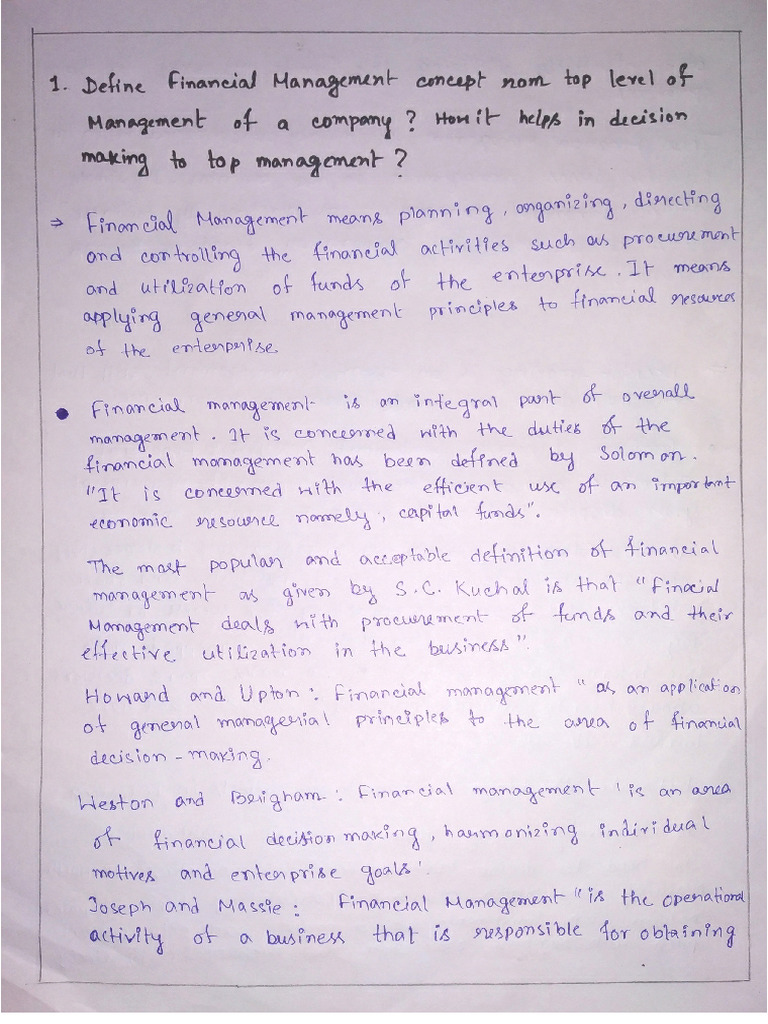 1. Define Financial Management concept nom top level of
Management of a company? How it helps in decision
making to top management?
⇒ Financial Management means planning, organizing, directing
and controlling the financial activities such as procurement
and utilization of funds of the enterprise. It means
applying general management principles to financial resources
of the enterprise.
• Financial management is an integral part of overall
management. It is concerned with the duties of the
financial management has been defined by Solomon.
"It is concerned with the efficient use of an important
economic resource namely, capital funds".
The most popular and acceptable definition of financial
management as given by S.C. Kuchal is that "Finacial
Management deals with procurement of funds and their
effective utilization in the business".
Howard and Upton: Financial management "as an application
of general managerial principles to the area of financial
decision-making.
Weston and Berigham: Financial management 'is an area
of financial decision making, harmonizing individual
motives and enterprise goals'.
Joseph and Massie: Financial Management "is the operational
activity of a business that is responsible for obtaining